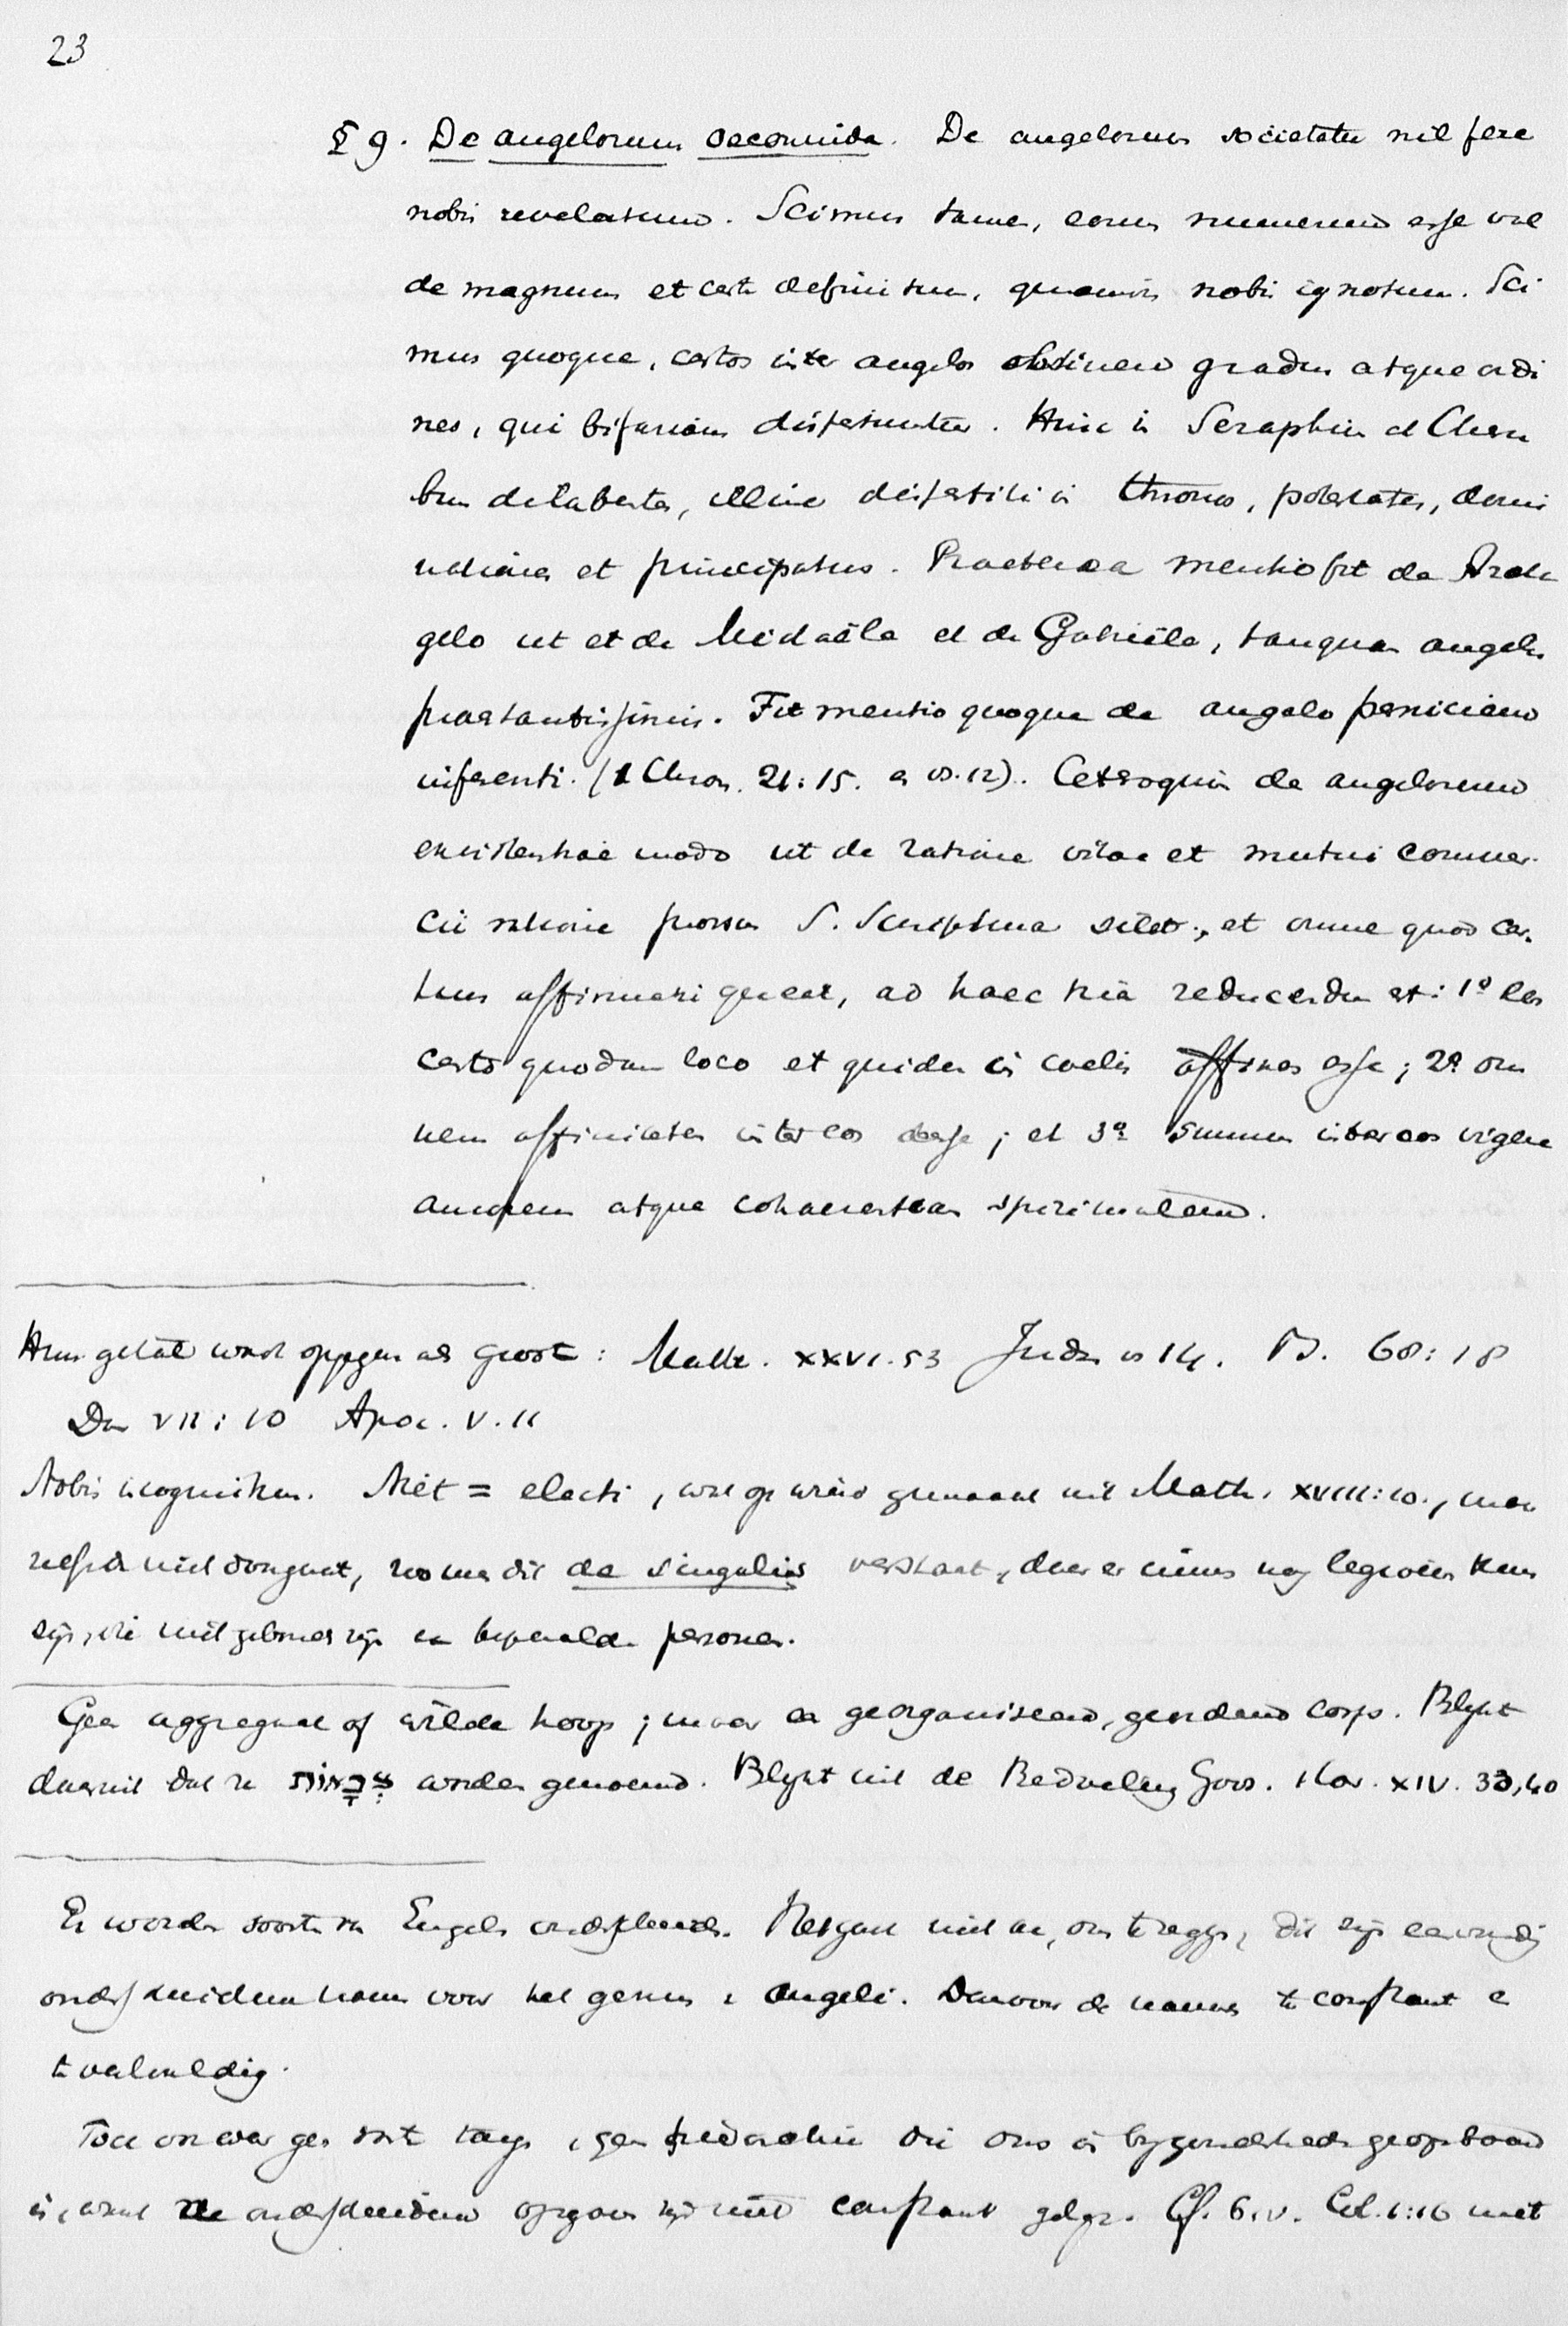 23
§ 9. De angelorum oeconomia. De angelorum societate nil fere
nobis revelatum. Scimus tamen, eorum numerum esse val
de magnum et certe definitum, quamvis nobis ignotum. Sci
mus quoque, certos inter angelos obtinere gradus atque ordi
nes, qui bifariam dispertiuntur. Hinc in Seraphim et Cheru
bim dilabentes, illinc dispertiti in thronos, potestates, domi
nationes et principatus. Praeterea mentio fit de Archan
gelo ut et de Michaële et de Gabriële, tanquam angelis
praestantissimis. Fit mentio quoque de angelo perniciem
inferenti. (1 Chron. 21:15. en vs. 12). Ceteroquin de angelorum
existentiae modo ut de ratione vitae et mutui commer-
cii ratione prorsus S. Scriptura silet, et omne quod cer-
tum affirmari queat, ad haec tria reducendum est: 1º eos
certo quodam loco et quidem in coelis affixos esse; 2º om
nem affinitatem inter eos abesse; et 3º summum inter eos vigere
amorem atque cohaerentiam spiritualem.
Hun getal wordt opgegeven als groot: Matth. XXVI.53 Judas vs 14. Ps. 68:18
Dan VII:10 Apoc. V.11
Nobis incognitum. Niet = electi, wel op grond van Matth. XVIII:10., maar
zelfs niet doorgaat, zoo men dit de singulis verstaat, daar er immers nog legioenen kunnen
zijn, die niet gebonden zijn aan bepaalde personen.
Geen aggregaat of wilde hoop; maar een georganiseerd, geordend corps. Blijkt
daaruit dat ze צְבָאוֹת worden genoemd. Blijkt uit de Bedoeling Gods. 1 Cor. XIV. 33,40
Er worden soorten van Engelen onderscheiden. Het gaat niet aan, om te zeggen, dit zijn eenvoudig
onderscheidene namen voor het genus: angeli. Daarvoor de namen te constant en
te veelvuldig.
Toch onwaar geen geopenbaard
is, want de onderscheidene opgaven zijn niet constant gelijk. Cf. b.v. Col. 1:16 met